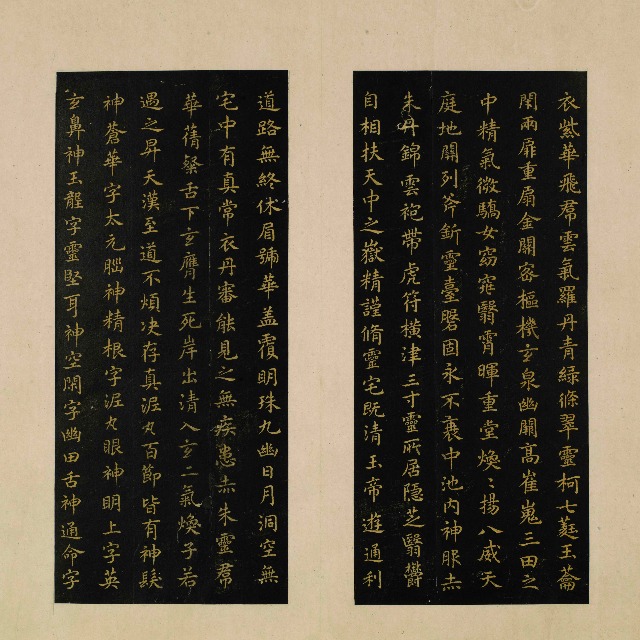 衣紫華飛帬雲氣羅丹青綠絛翠靈柯七蕤玉籥
閇兩扉重扇金關密樞機玄泉幽關高崔嵬三田之
中精氣微驕女窈窕翳霄暉重堂煥〻揚八威天
庭地關列斧斨靈臺磐固永不衰中池內神服赤
朱丹錦雲袍帶虎符橫津三寸靈所居隱芝翳鬱
自相扶天中之嶽精謹脩靈宅既清玉帝遊通利
道路無終休眉號華蓋覆明珠九幽日月洞空無
宅中有真常衣丹審能見之無疾患赤朱靈帬
華蒨粲舌下玄膺生死岸出清入玄二氣煥子若
遇之昇天漢至道不煩決存真泥丸百節皆有神髮
神蒼華字太元腦神精根字泥丸眼神明上字英
玄鼻神玉壟字靈堅耳神空閑字幽田舌神通命字